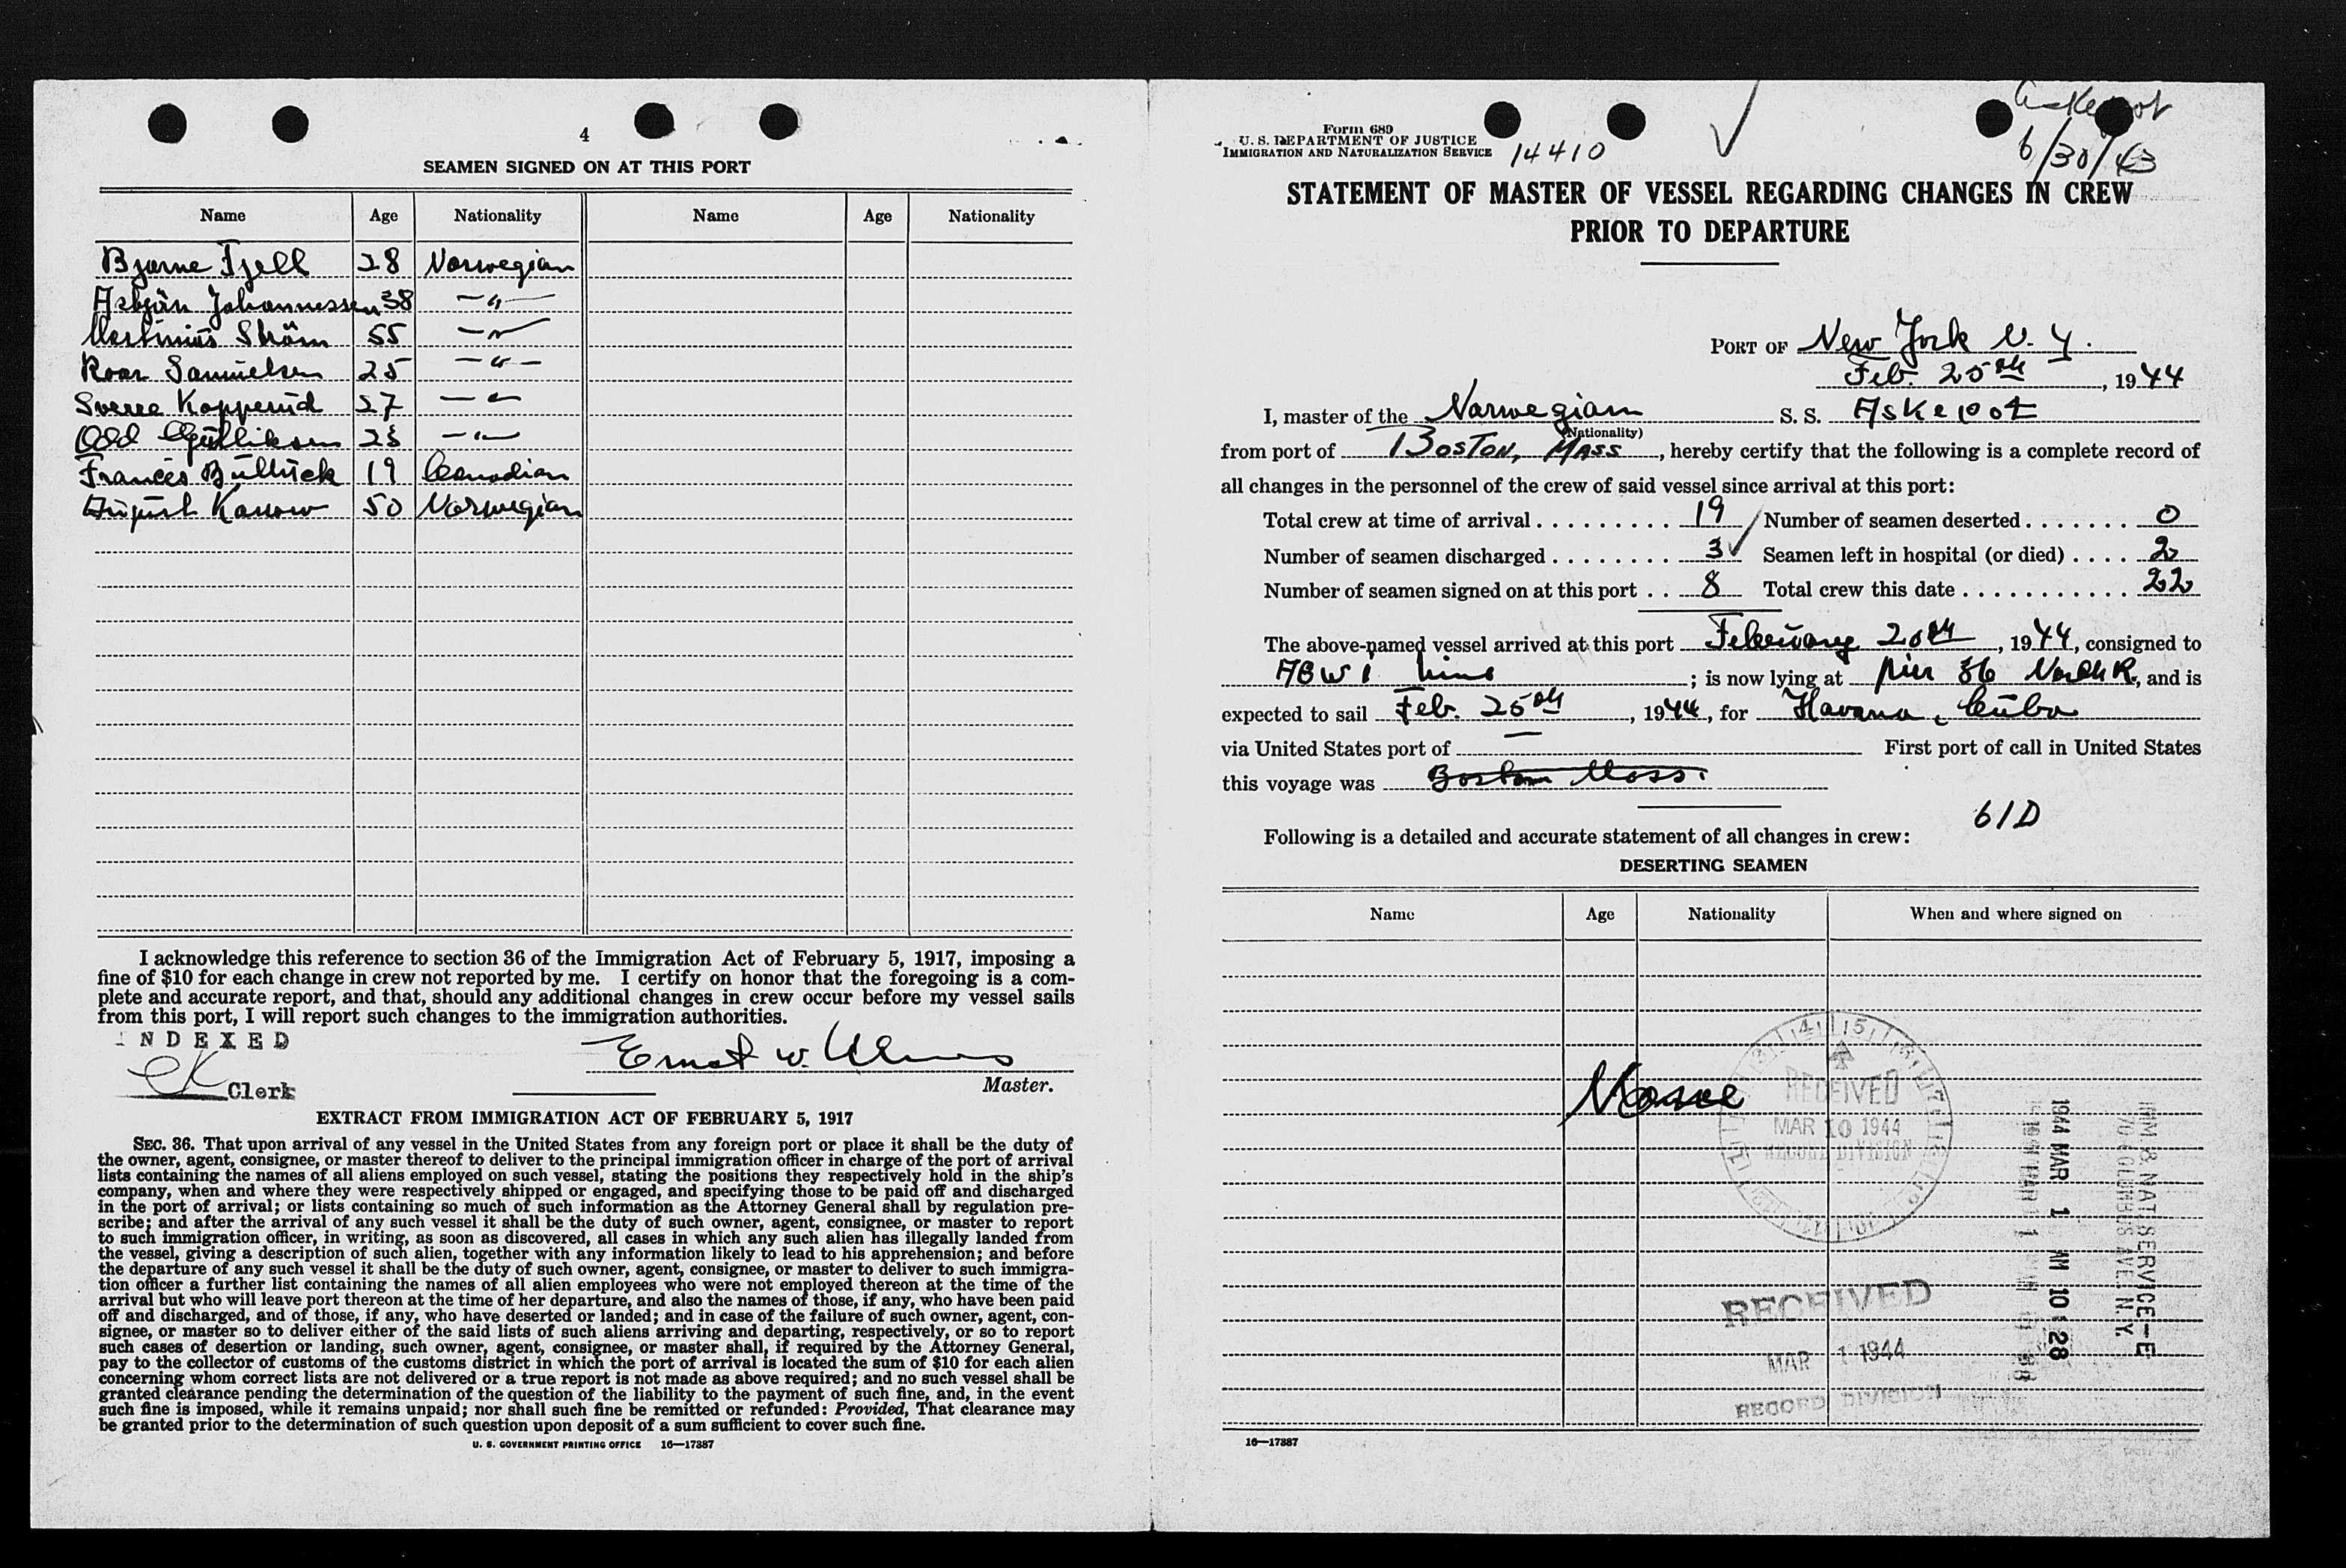 4
SEAMEN SIGNED ON AT THIS PORT
Name Age Nationality Name Age Nationality
Bjarne Fjell 28 Norwegian
Asbjörn Johannessen 38 —"—
55 —"—
Roar Samuelsen 25 —"—
Sverre Kopperud 27 —"—
Odd Gulliksen 23 —"—
Frances 19 Canadian
August 50 Norwegian
I acknowledge this reference to section 36 of the Immigration Act of February 5, 1917, imposing a
fine of $10 for each change in crew not reported by me. I certify on honor that the foregoing is a com-
plete and accurate report, and that, should any additional changes in crew occur before my vessel sails
from this port, I will report such changes to the immigration authorities.
INDEXED
Clerk
Ernst W.
Master.
EXTRACT FROM IMMIGRATION ACT OF FEBRUARY 5, 1917
SEC. 36. That upon arrival of any vessel in the United States from any foreign port or place it shall be the duty of
the owner, agent, consignee, or master thereof to deliver to the principal immigration officer in charge of the port of arrival
lists containing the names of all aliens employed on such vessel, stating the positions they respectively hold in the ship's
company, when and where they were respectively shipped or engaged, and specifying those to be paid off and discharged
in the port of arrival; or lists containing so much of such information as the Attorney General shall by regulation pre-
scribe; and after the arrival of any such vessel it shall be the duty of such owner, agent, consignee, or master to report
to such immigration officer, in writing, as soon as discovered, all cases in which any such alien has illegally landed from
the vessel, giving a description of such alien, together with any information likely to lead to his apprehension; and before
the departure of any such vessel it shall be the duty of such owner, agent, consignee, or master to deliver to such immigra-
tion officer a further list containing the names of all alien employees who were not employed thereon at the time of the
arrival but who will leave port thereon at the time of her departure, and also the names of those, if any, who have been paid
off and discharged, and of those, if any, who have deserted or landed; and in case of the failure of such owner, agent, con-
signee, or master so to deliver either of the said lists of such aliens arriving and departing, respectively, or so to report
such cases of desertion or landing, such owner, agent, consignee, or master shall, if required by the Attorney General,
pay to the collector of customs of the customs district in which the port of arrival is located the sum of $10 for each alien
concerning whom correct lists are not delivered or a true report is not made as above required; and no such vessel shall be
granted clearance pending the determination of the question of the liability to the payment of such fine, and, in the event
such fine is imposed, while it remains unpaid; nor shall such fine be remitted or refunded: Provided, That clearance may
be granted prior to the determination of such question upon deposit of a sum sufficient to cover such fine.
U. S. GOVERNMENT PRINTING OFFICE 16—17387
Form 689
U. S. DEPARTMENT OF JUSTICE
IMMIGRATION AND NATURALIZATION SERVICE
14410
Askepot
6/30/43
STATEMENT OF MASTER OF VESSEL REGARDING CHANGES IN CREW
PRIOR TO DEPARTURE
PORT OF New York N. Y.
Feb. 25th, 1944
I, master of the Norwegian S. S. Askepot
(Nationality)
from port of Boston, Mass, hereby certify that the following is a complete record of
all changes in the personnel of the crew of said vessel since arrival at this port:
Total crew at time of arrival . . . . . . . . . 19 Number of seamen deserted . . . . . . . 0
Number of seamen discharged . . . . . . . . 3 Seamen left in hospital (or died) . . . . 2
Number of seamen signed on at this port . . 8 Total crew this date . . . . . . . . . . . 22
The above-named vessel arrived at this port February 20th, 1944, consigned to
AGWI Line; is now lying at pier 86 North R., and is
expected to sail Feb. 25th, 1944, for Havana, Cuba
via United States port of — First port of call in United States
this voyage was Boston Mass.
61D
Following is a detailed and accurate statement of all changes in crew:
DESERTING SEAMEN
Name Age Nationality When and where signed on
None
RECEIVED
MAR 10 1944
RECORD DIVISION
RECEIVED
MAR 1 1944
RECORD DIVISION
1944 MAR 1 AM 10 28
IMM. & NAT. SERVICE—E
70 COLUMBUS AVE. N. Y.
16—17387